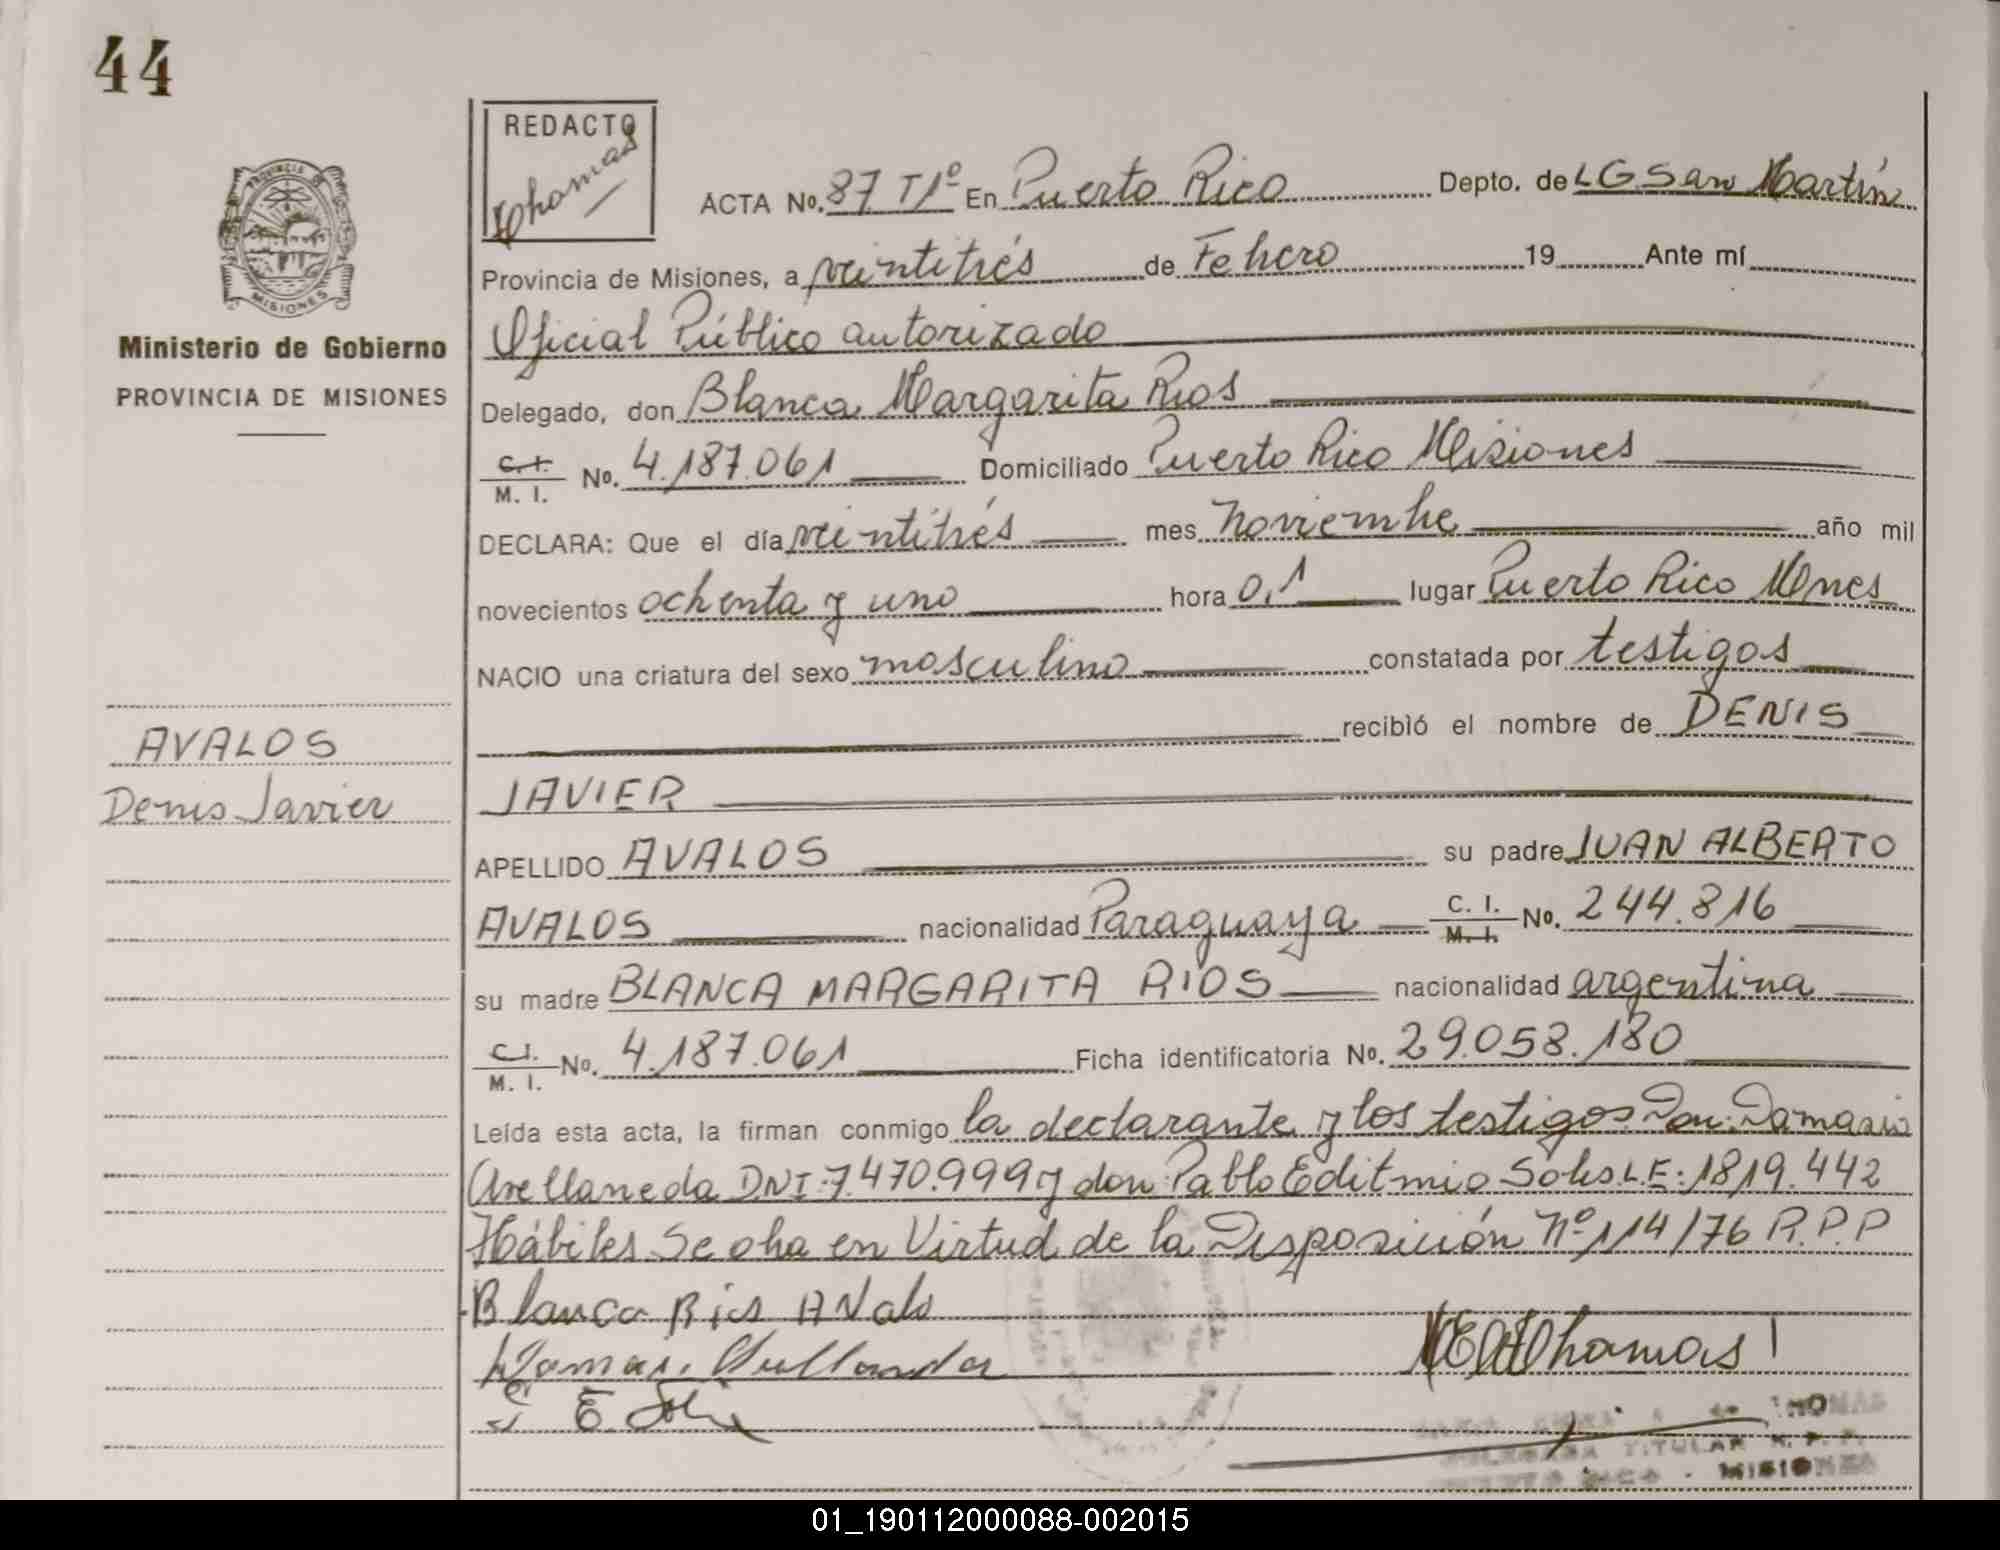 44
REDACTO
Thomas
ACTA No. 87 T1º En Puerto Rico Depto. de LG San Martín
Provincia de Misiones, a veintitrés de Febrero 19 Ante mí
Oficial Público autorizado
Delegado, don Blanca Margarita Rios
C.I. / M. I. No. 4.187.061 Domiciliado Puerto Rico Misiones
DECLARA: Que el día veintitrés mes noviembre año mil
novecientos ochenta y uno hora 0,1 lugar Puerto Rico Mnes
NACIO una criatura del sexo masculino constatada por testigos
recibió el nombre de DENIS
JAVIER
APELLIDO AVALOS su padre JUAN ALBERTO
AVALOS nacionalidad Paraguaya C. I. / M. I. No. 244.816
su madre BLANCA MARGARITA RIOS nacionalidad argentina
C.I. / M. I. No. 4.187.061 Ficha identificatoria No. 29.058.180
Leída esta acta, la firman conmigo la declarante y los testigos Don: Damasio
Arellaneda DNI: 7.470.999 y don: Pablo Editmio Solis L.E: 1819.442
Hábiles Se oha en Virtud de la Disposición Nº 114/76 R.P.P
Blanca Rios Avalo
E. Solis
Thomas
THOMAS
TITULAR R. P. P.
PUERTO RICO - MISIONES
PROVINCIA DE
MISIONES
Ministerio de Gobierno
PROVINCIA DE MISIONES
AVALOS
Denis Javier
01_190112000088-002015